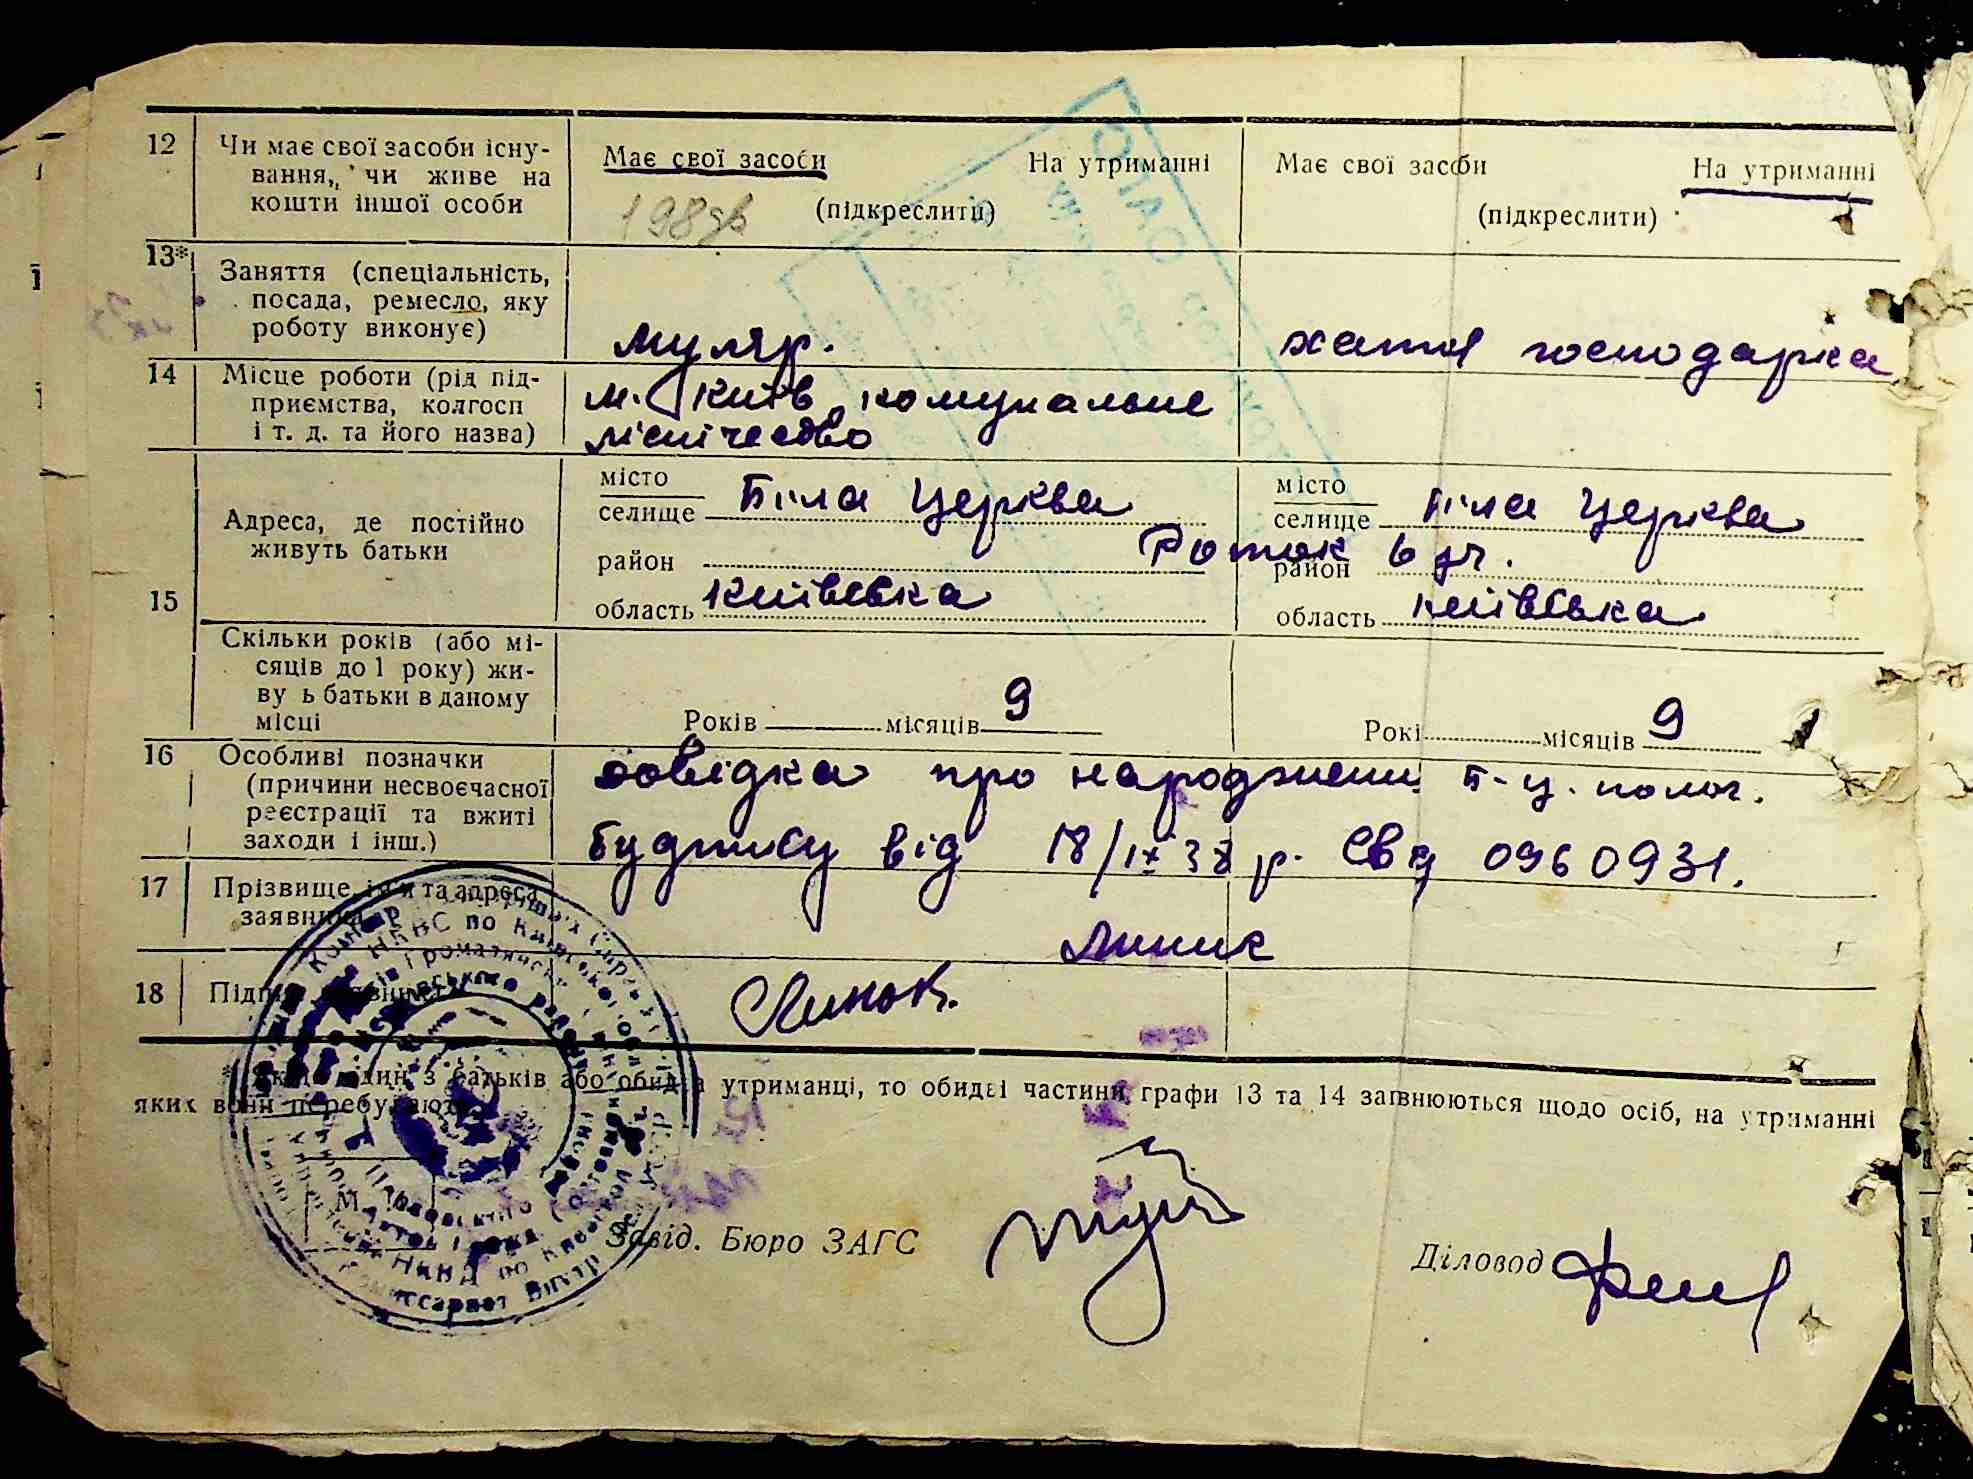 12 Чи має свої засоби існу-
вання, чи живе на
кошти іншої особи
Має свої засоби На утриманні
(підкреслити)
Має свої засоби На утриманні
(підкреслити)
13* Заняття (спеціальність,
посада, ремесло, яку
роботу виконує)
муляр.
хатня господарка
14 Місце роботи (рід під-
приємства, колгосп
і т. д. та його назва)
м. Київ комунальне
лісничество
15 Адреса, де постійно
живуть батьки
місто
селище Біла Церква
район
область Київська
місто
селище Біла Церква
Роток 6 дч.
район
область Київська
Скільки років (або мі-
сяців до 1 року) жи-
ву ь батьки в даному
місці
Років місяців 9
Рокі місяців 9
16 Особливі позначки
(причини несвоєчасної
реєстрації та вжиті
заходи і інш.)
довідка про народження Б-Ц. полог.
будинку від 18/IX 38 р. Свід 0960931.
17 Прізвище, ім'я та адреса
заявника
Линик
18 Підпис заявника
* Якщо один з батьків або обидва утриманці, то обидві частини графи 13 та 14 заповнюються щодо осіб, на утриманні
яких вони перебувають
М.
Завід. Бюро ЗАГС
Діловод